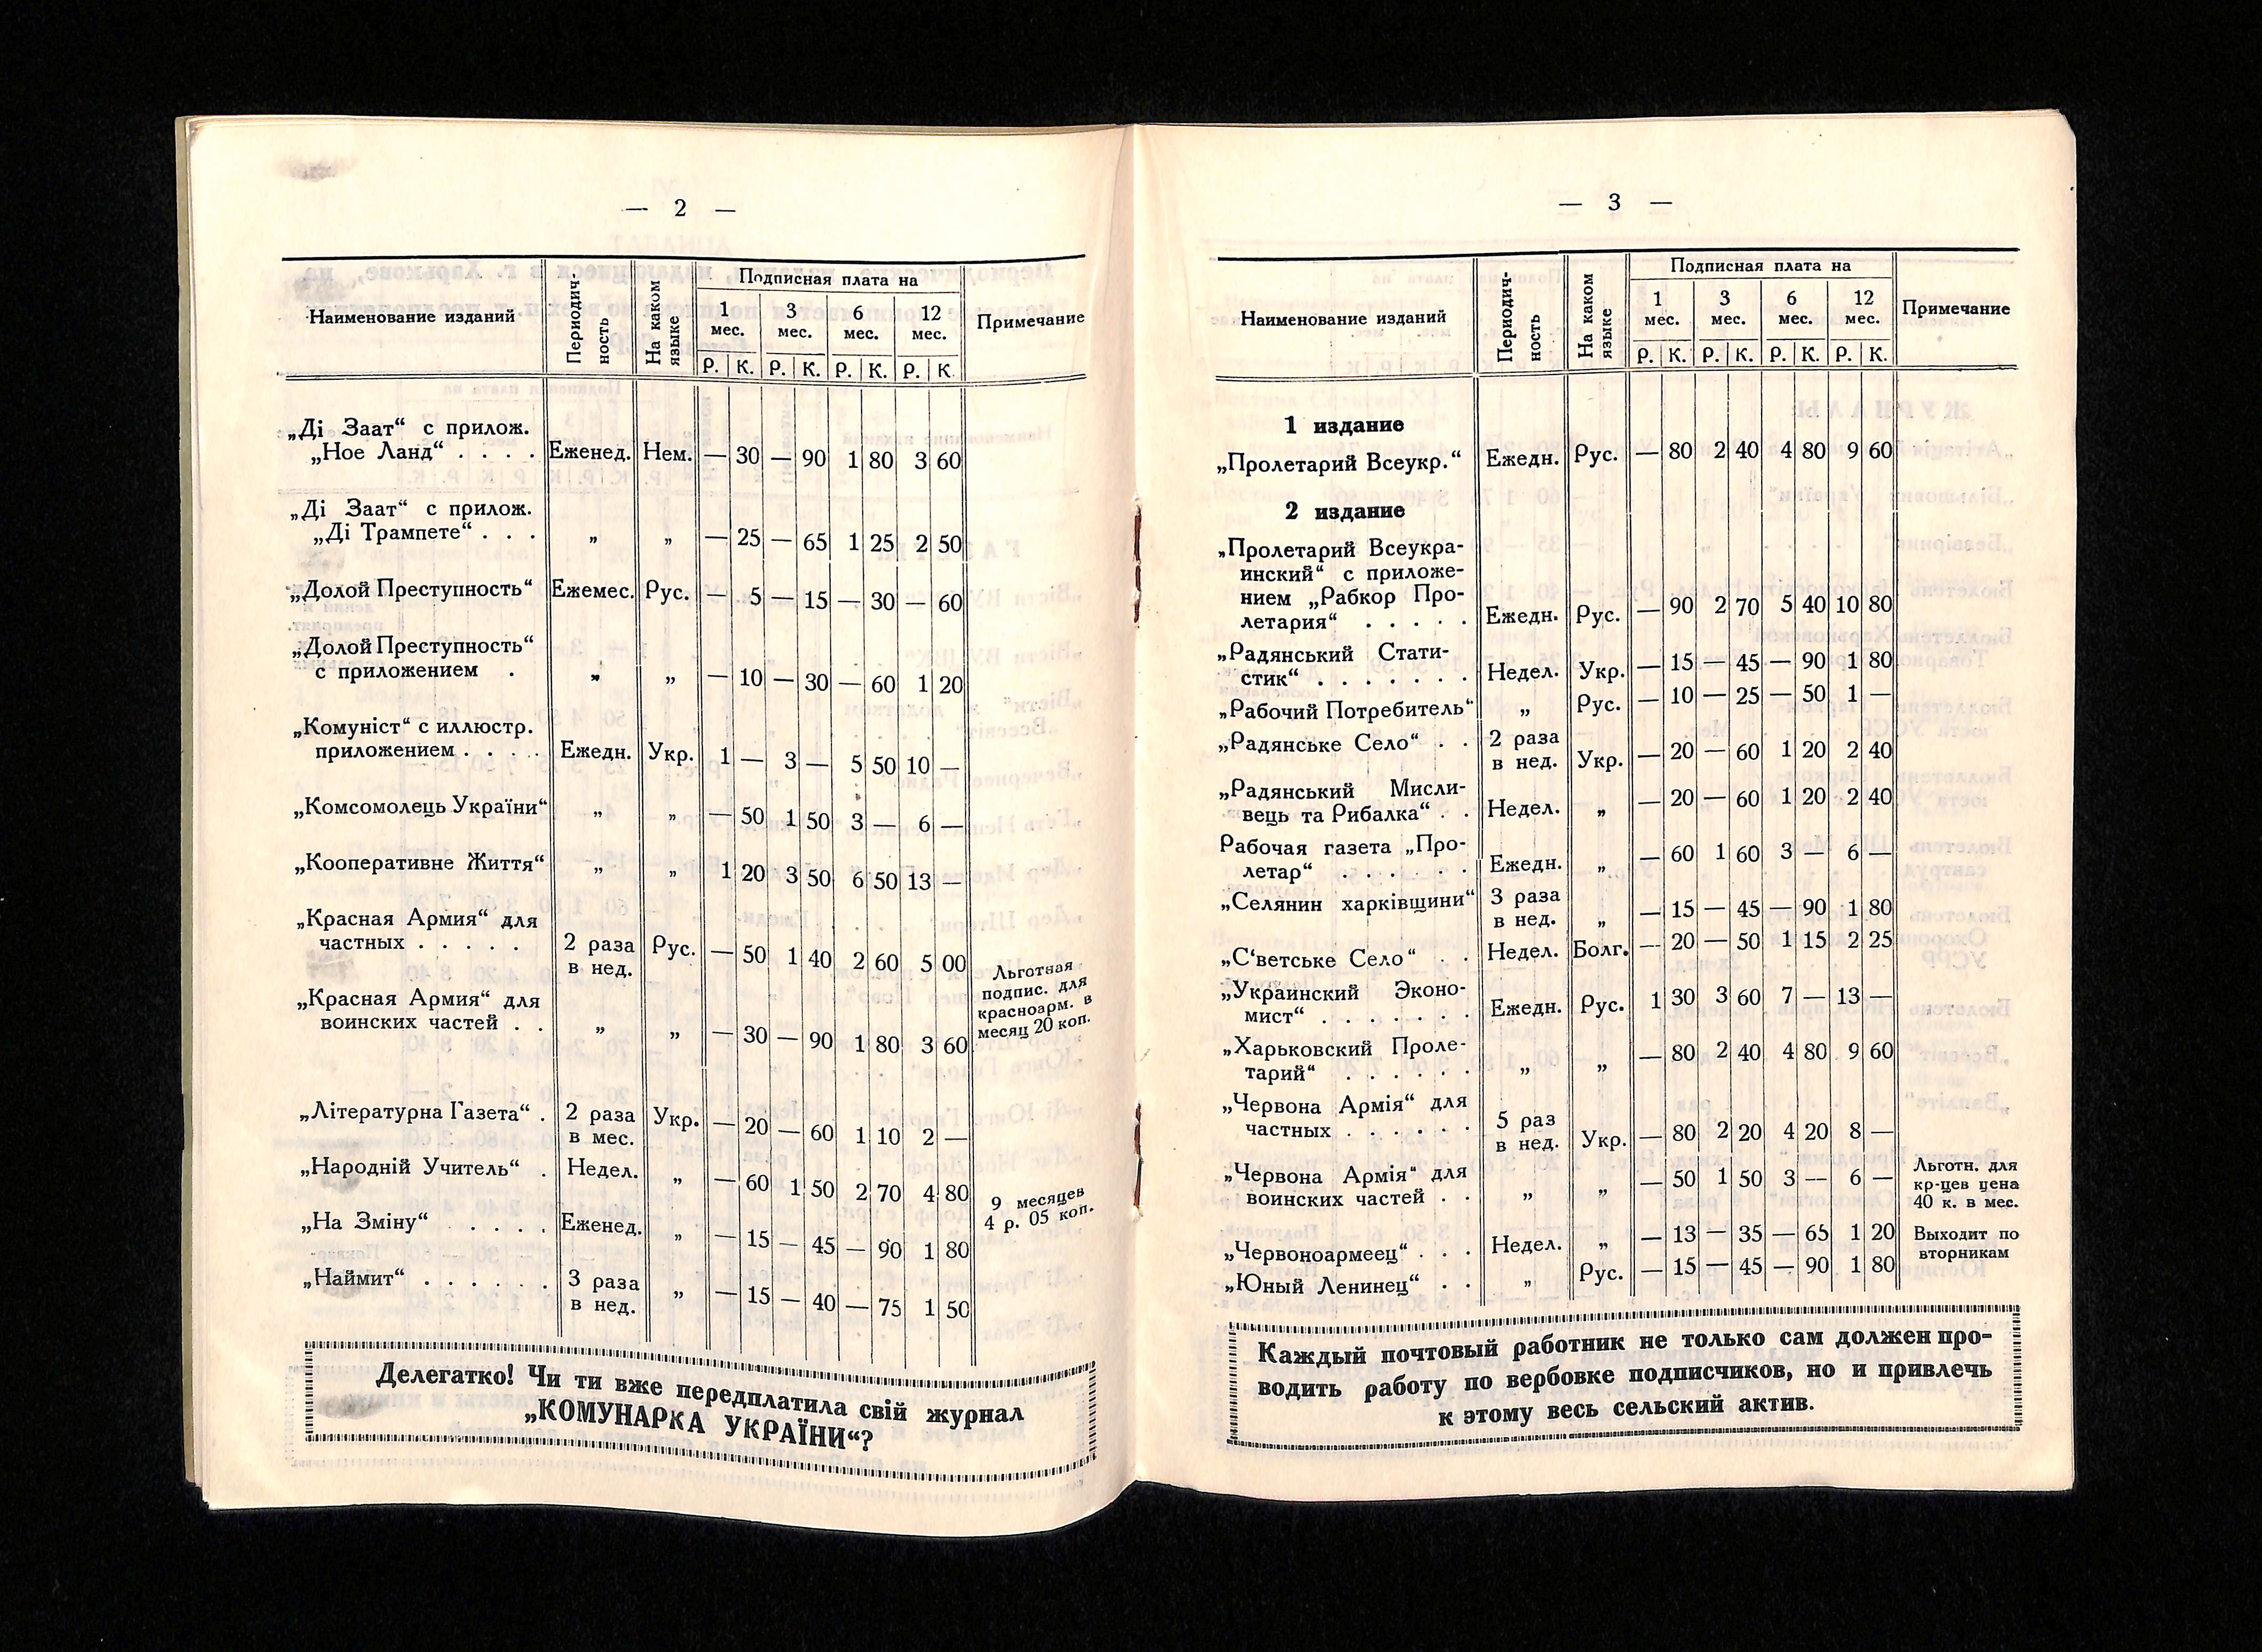 — 2 —
Наименование изданий
Периодич-
ность
На каком
языке
Подписная плата на
Примечание
1 3 6 12
мес. мес. мес. мес.
Р. К. Р. К. Р. К. Р. К.
„Ді Заат“ с прилож.
„Ное Ланд“ . . . . Еженед. Нем. — 30 — 90 1 80 3 60
„Ді Заат“ с прилож.
„Ді Трампете“ . . . „ „ — 25 — 65 1 25 2 50
„Долой Преступность“ Ежемес. Рус. — 5 — 15 — 30 — 60
„Долой Преступность“
с приложением . „ „ — 10 — 30 — 60 1 20
„Комуніст“ с иллюстр.
приложением . . . . Ежедн. Укр. 1 — 3 — 5 50 10 —
„Комсомолець України“ „ „ — 50 1 50 3 — 6 —
„Кооперативне Життя“ „ „ 1 20 3 50 6 50 13 —
„Красная Армия“ для
частных . . . . . 2 раза
в нед. Рус. — 50 1 40 2 60 5 00
„Красная Армия“ для
воинских частей . . „ „ — 30 — 90 1 80 3 60
Льготная
подпис. для
красноарм. в
месяц 20 коп.
„Літературна Газета“ . 2 раза
в мес. Укр. — 20 — 60 1 10 2 —
„Народній Учитель“ . Недел. „ — 60 1 50 2 70 4 80
9 месяцев
4 р. 05 коп.
„На Зміну“ . . . . . Еженед. „ — 15 — 45 — 90 1 80
„Наймит“ . . . . . . 3 раза
в нед. „ — 15 — 40 — 75 1 50
Делегатко! Чи ти вже передплатила свій журнал
„КОМУНАРКА УКРАЇНИ“?
— 3 —
Наименование изданий
Периодич-
ность
На каком
языке
Подписная плата на
Примечание
1 3 6 12
мес. мес. мес. мес.
Р. К. Р. К. Р. К. Р. К.
1 издание
„Пролетарий Всеукр.“ Ежедн. Рус. — 80 2 40 4 80 9 60
2 издание
„Пролетарий Всеукра-
инский“ с приложе-
нием „Рабкор Про-
летария“ . . . . . Ежедн. Рус. — 90 2 70 5 40 10 80
„Радянський Стати-
стик“ . . . . . . . Недел. Укр. — 15 — 45 — 90 1 80
„Рабочий Потребитель“ „ Рус. — 10 — 25 — 50 1 —
„Радянське Село“ . . 2 раза
в нед. Укр. — 20 — 60 1 20 2 40
„Радянський Мисли-
вець та Рибалка“ . . Недел. „ — 20 — 60 1 20 2 40
Рабочая газета „Про-
летар“ . . . . . . Ежедн. „ — 60 1 60 3 — 6 —
„Селянин харківщини“ 3 раза
в нед. „ — 15 — 45 — 90 1 80
„С‘ветське Село“ . . Недел. Болг. — 20 — 50 1 15 2 25
„Украинский Эконо-
мист“ . . . . . . . Ежедн. Рус. 1 30 3 60 7 — 13 —
„Харьковский Проле-
тарий“ . . . . . . „ „ — 80 2 40 4 80 9 60
„Червона Армія“ для
частных . . . . . . 5 раз
в нед. Укр. — 80 2 20 4 20 8 —
„Червона Армія“ для
воинских частей . . „ „ — 50 1 50 3 — 6 —
Льготн. для
кр-цев цена
40 к. в мес.
„Червоноармеец“ . . . Недел. „ — 13 — 35 — 65 1 20
Выходит по
вторникам
„Юный Ленинец“ . . „ Рус. — 15 — 45 — 90 1 80
Каждый почтовый работник не только сам должен про-
водить работу по вербовке подписчиков, но и привлечь
к этому весь сельский актив.